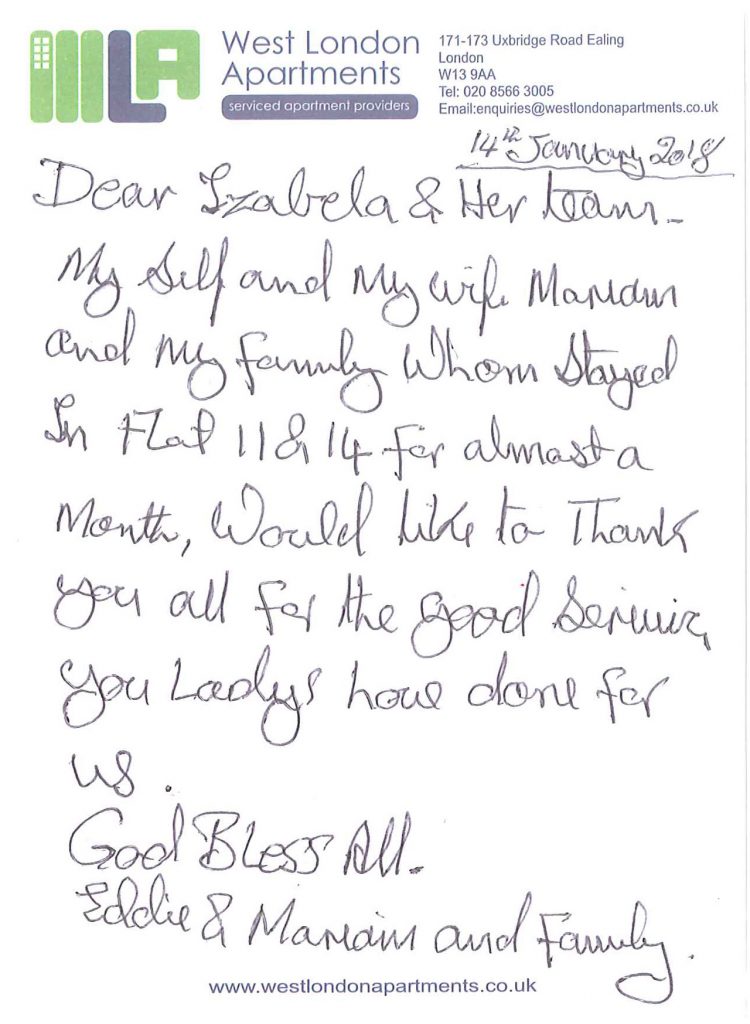 WLA
West London
Apartments
serviced apartment providers
171-173 Uxbridge Road Ealing
London
W13 9AA
Tel: 020 8566 3005
Email:enquiries@westlondonapartments.co.uk
14th January 2018
Dear Izabela & Her team -
My Self and my wife Mariam
and my family Whom Stayed
In Flat 11 & 14 for almost a
Month, Would like to Thank
you all for the good Service
you Ladys have done for
us.
God Bless All -
Eddie & Mariam and Family.
www.westlondonapartments.co.uk